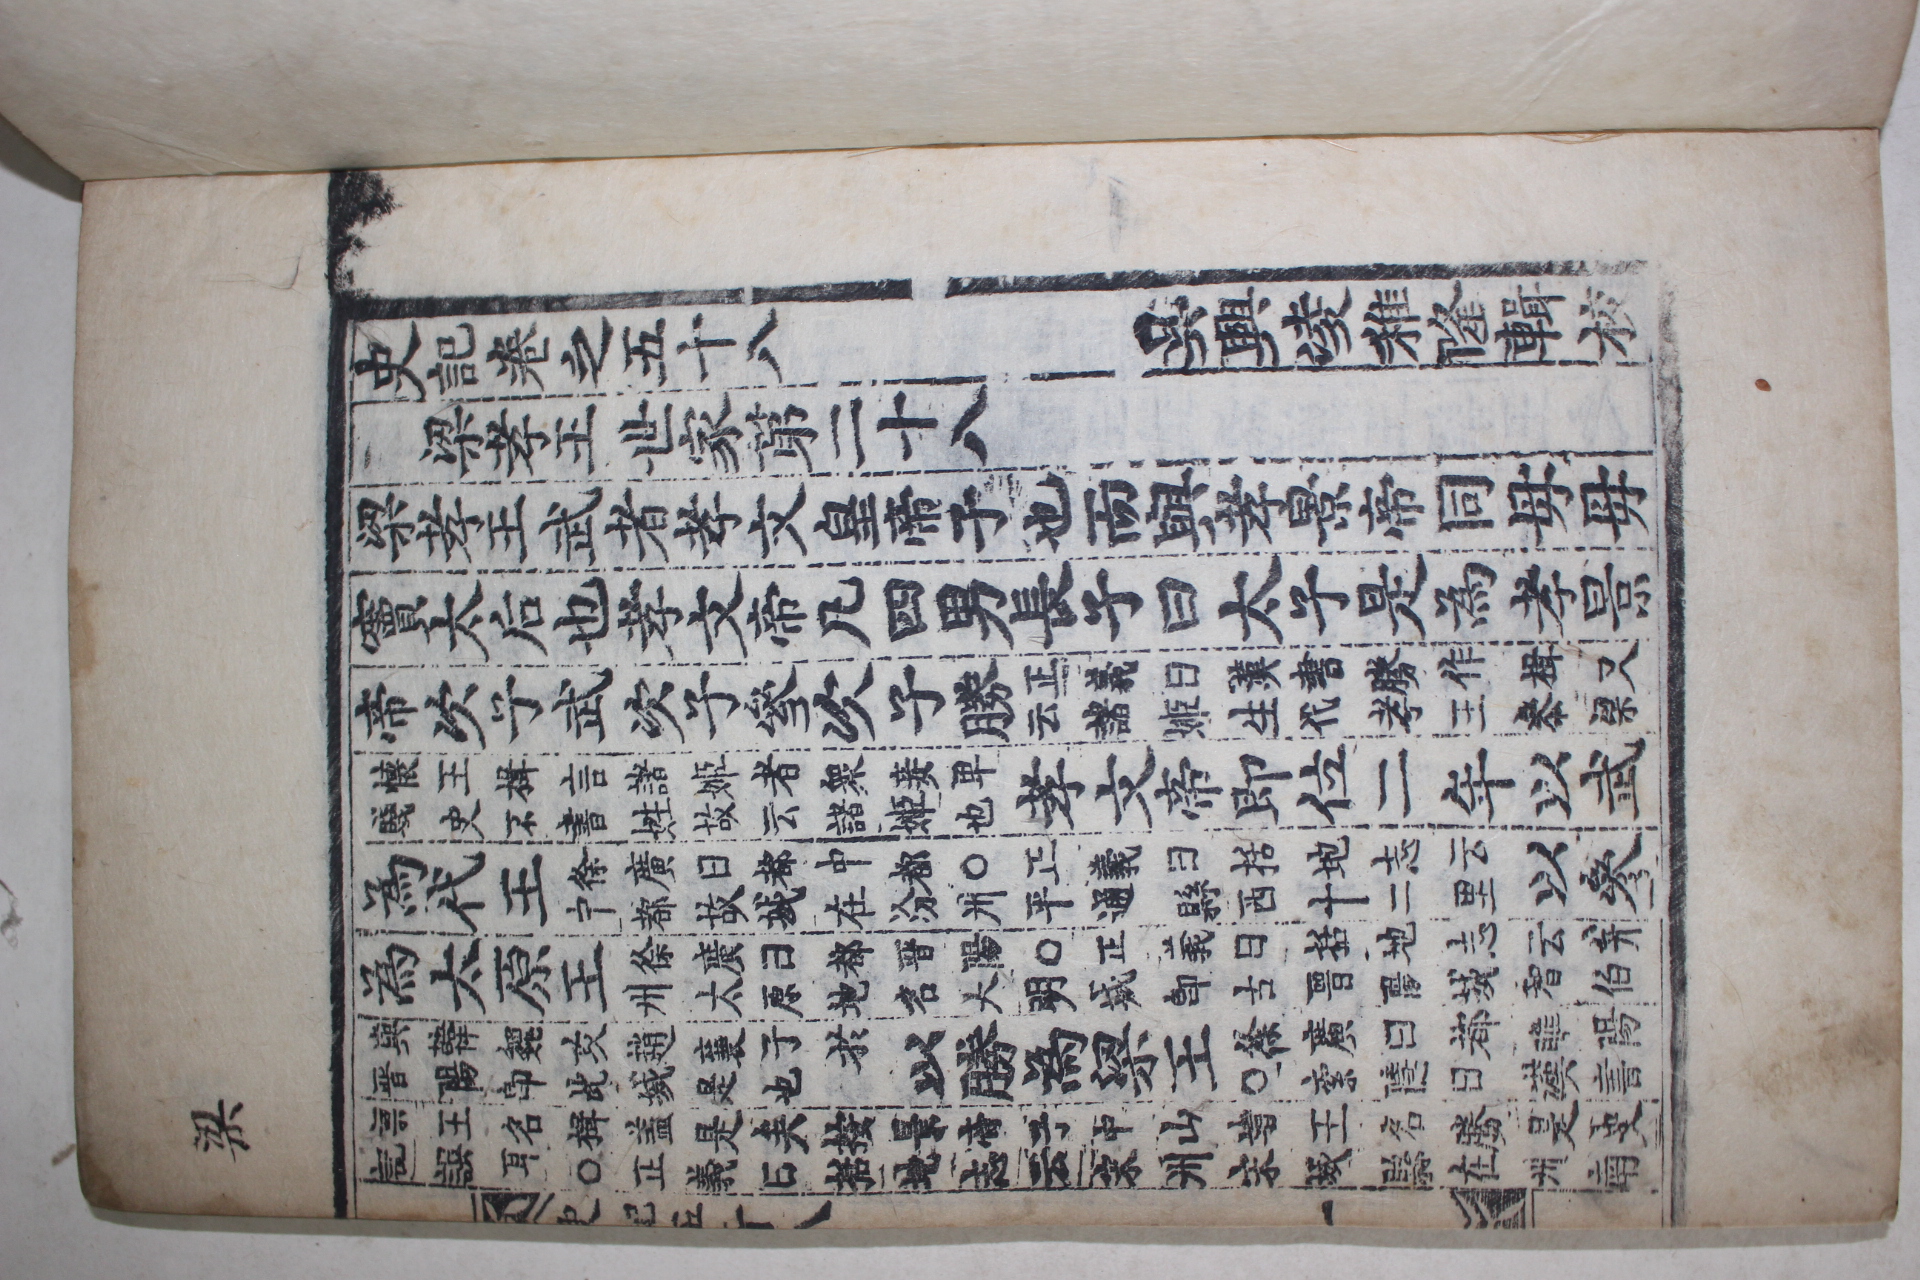 梁
史記卷之五十八 吳興凌稚隆輯校
梁孝王世家第二十八
梁孝王武者孝文皇帝子也而與孝景帝同母母
竇太后也孝文帝凡四男長子曰太子是為孝景
帝次子武次子參次子勝正義曰漢書勝作楫又云諸姬生代孝王參梁
懷王楫言諸姬者衆妾卑賤史不書姓故云諸姬也孝文帝即位二年以武
為代王徐廣曰都中都○正義曰括地志云中都故城在汾州平通縣西十二里以參
為太原王徐廣曰都晉陽○正義曰括地志云并州太原地名大明城即古晉陽城智伯
與韓魏攻趙襄子於晉陽即此城是也以勝為梁王徐廣曰都睢陽○索隱曰漢書
梁王名楫蓋是矣按景帝子中山靖王名勝是史記誤耳○正義曰括地志云宋州宋城縣在州南
史記五十八 一